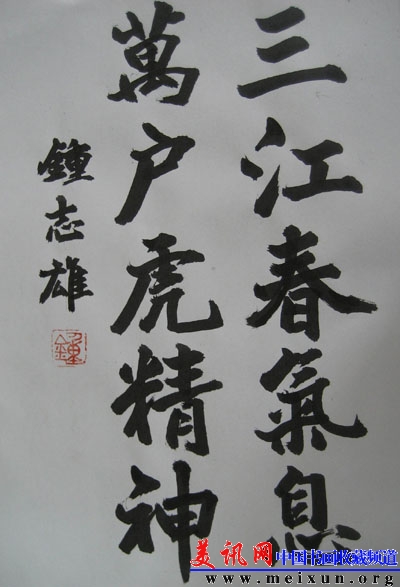 三江春氣息
萬户虎精神
鍾志雄
鍾
美讯网 中国书画收藏频道
www.meixun.org